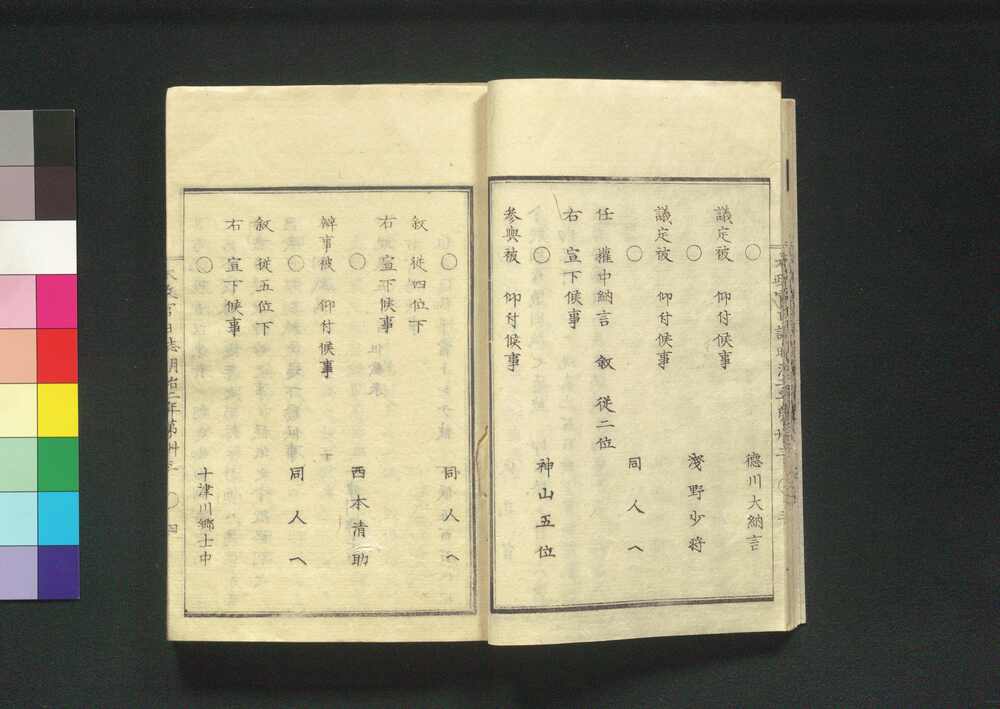 ○ 德川大納言
議定被 仰付候事
○ 淺野少將
議定被 仰付候事
○ 同人へ
任 權中納言 敘 從二位
右 宣下候事
○ 神山五位
參與被 仰付候事
○ 同人へ
敘 從四位下
右 宣下候事
○ 西本清助
辨事被 仰付候事
○ 同人へ
敘 從五位下
右 宣下候事
○ 十津川鄉士中
太政官日誌明治二年第卅三 ○ 四